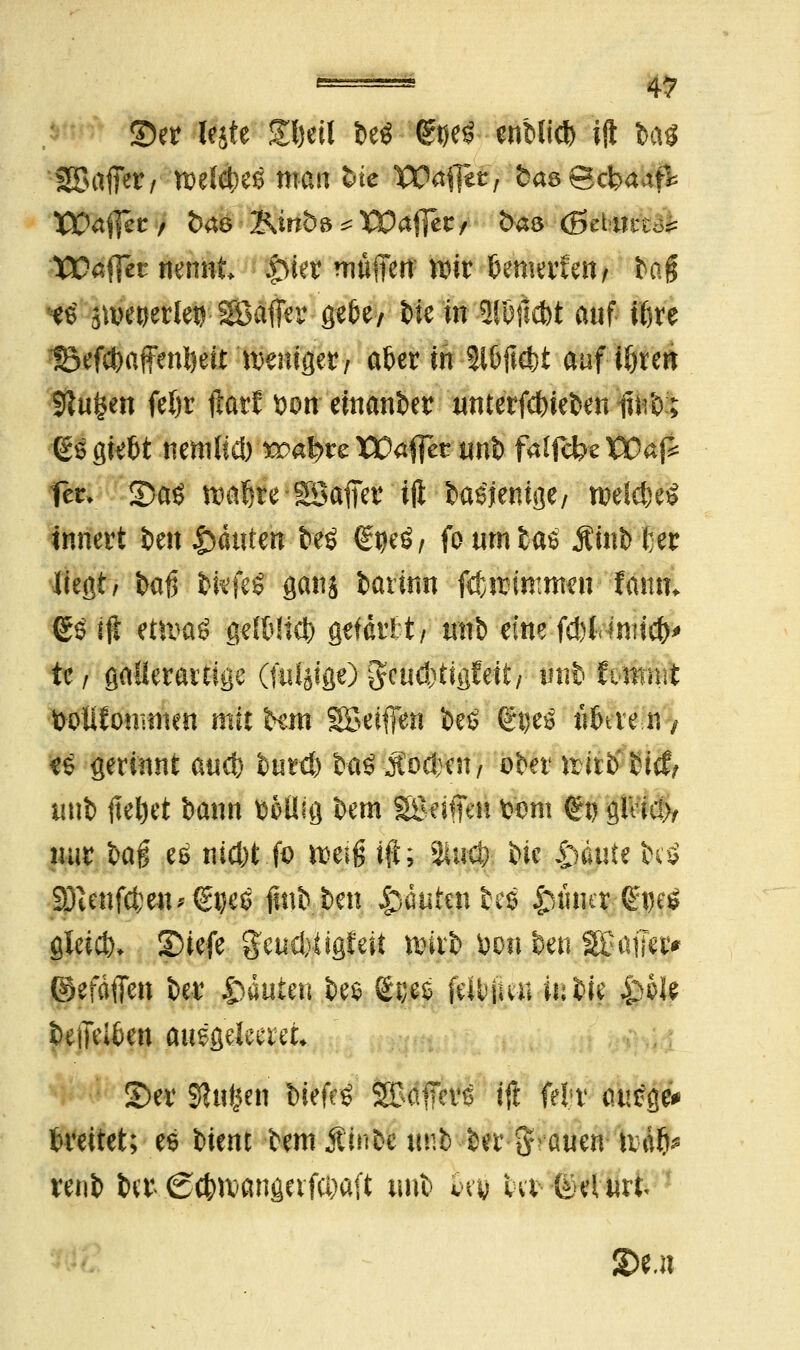 47
Der lezte Theil des Eyes endlich ist das
Wasser, welches man die Wasser, das Schaaf-
Wasser, das Kinds-Wasser, das Geburts-
Wasser nennt. Hier müssen wir bemerken, daß
es zweyerley Wasser gebe, die in Absicht auf ihre
Beschaffenheit weniger, aber in Absicht auf ihren
Nutzen sehr stark von einander unterschieden sind;
Es giebt nemlich wahre Wasser und falsche Was-
ser. Das wahre Wasser ist dasjenige, welches
innert den Häuten des Eyes, so um das Kind her
liegt, daß dieses ganz darinn schwimmen kann.
Es ist etwas gelblich gefärbt, und eine schleimich-
te, gallerartige (sulzige) Feuchtigkeit, und kommt
vollkommen mit dem Weissen des Eyes überein,
es gerinnt auch durch das Kochen, oder wird dick,
und siehet dann völlig dem Weissen vom Ey gleich,
nur daß es nicht so weiß ist; Auch die Häute des
Menschen-Eyes sind den Häuten des Hüner Eyes
gleich. Diese Feuchtigkeit wird von den Wasser-
Gefässen der Häuten des Eyes selbsten in die Höle
desselben ausgeleeret.
Der Nutzen dieses Wassers ist sehr ausge-
breitet; es dient dem Kinde und der Frauen wäh-
rend der Schwangerschaft und bey der Geburt.
Den